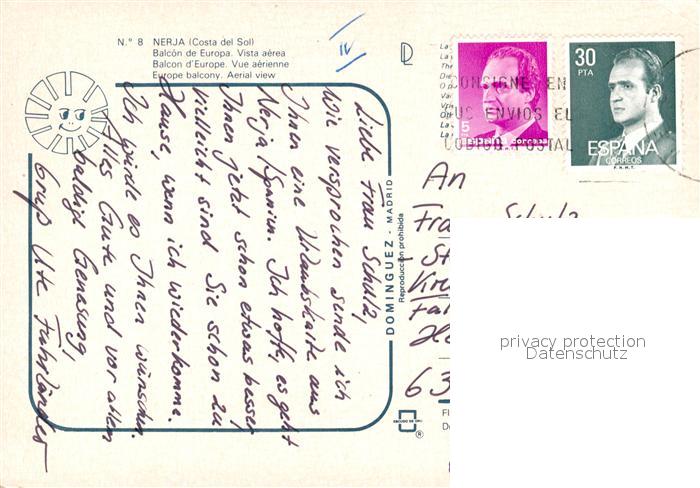 N.º 8 NERJA (Costa del Sol)
Balcón de Europa. Vista aérea
Balcon d'Europe. Vue aérienne
Europe balcony. Aerial view
IV
Liebe Frau Schulz,
Wie versprochen sende ich
Ihnen eine Urlaubskarte aus
Nerja/Spanien. Ich hoffe, es geht
Ihnen jetzt schon etwas besser
vielleicht sind Sie schon zu
Hause, wenn ich wiederkomme.
Ich würde es Ihnen wünschen.
Alles Gute und vor allem
baldige Genesung,
Gruß Ute Fuhrländer
DOMINGUEZ - MADRID
Reproducción prohibida
ESCUDO DE ORO
®
5
ESPAÑA CORREOS
30
PTA
ESPAÑA
CORREOS
F.N.M.T.
CONSIGNE EN
SUS ENVIOS EL
CODIGO POSTAL
An
Frau Schulz
63
privacy protection
Datenschutz